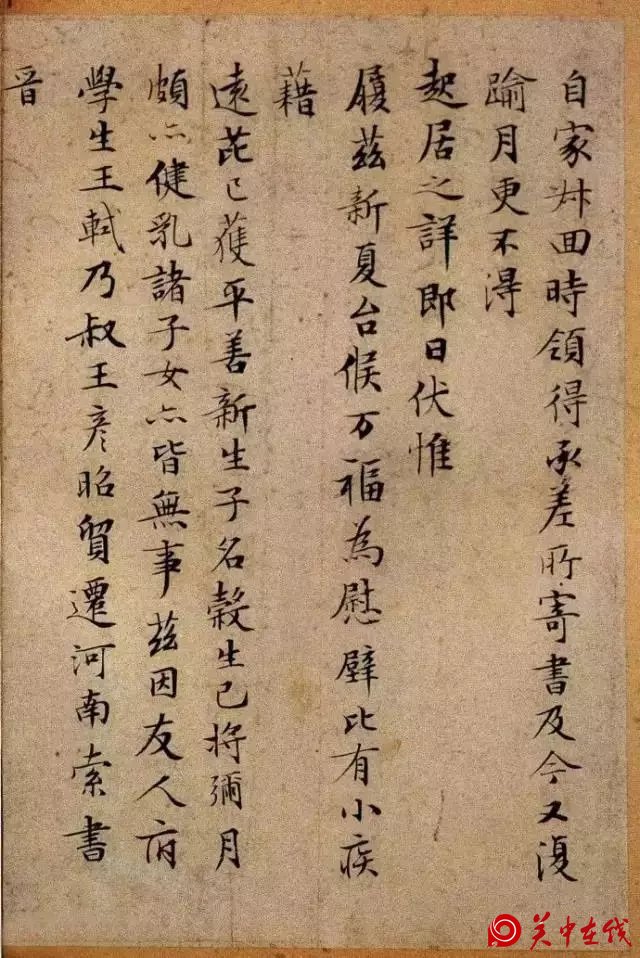 自家舛囬時領得承差所寄書及今又復
踰月更不得
起居之詳即日伏惟
履茲新夏台候万福為慰璧比有小疾
藉
遠芘已獲平善新生子名穀生已将彌月
頗亦健乳諸子女亦皆無事茲因友人府
學生王軾乃叔王彦昭貿遷河南索書
晋
关中在线